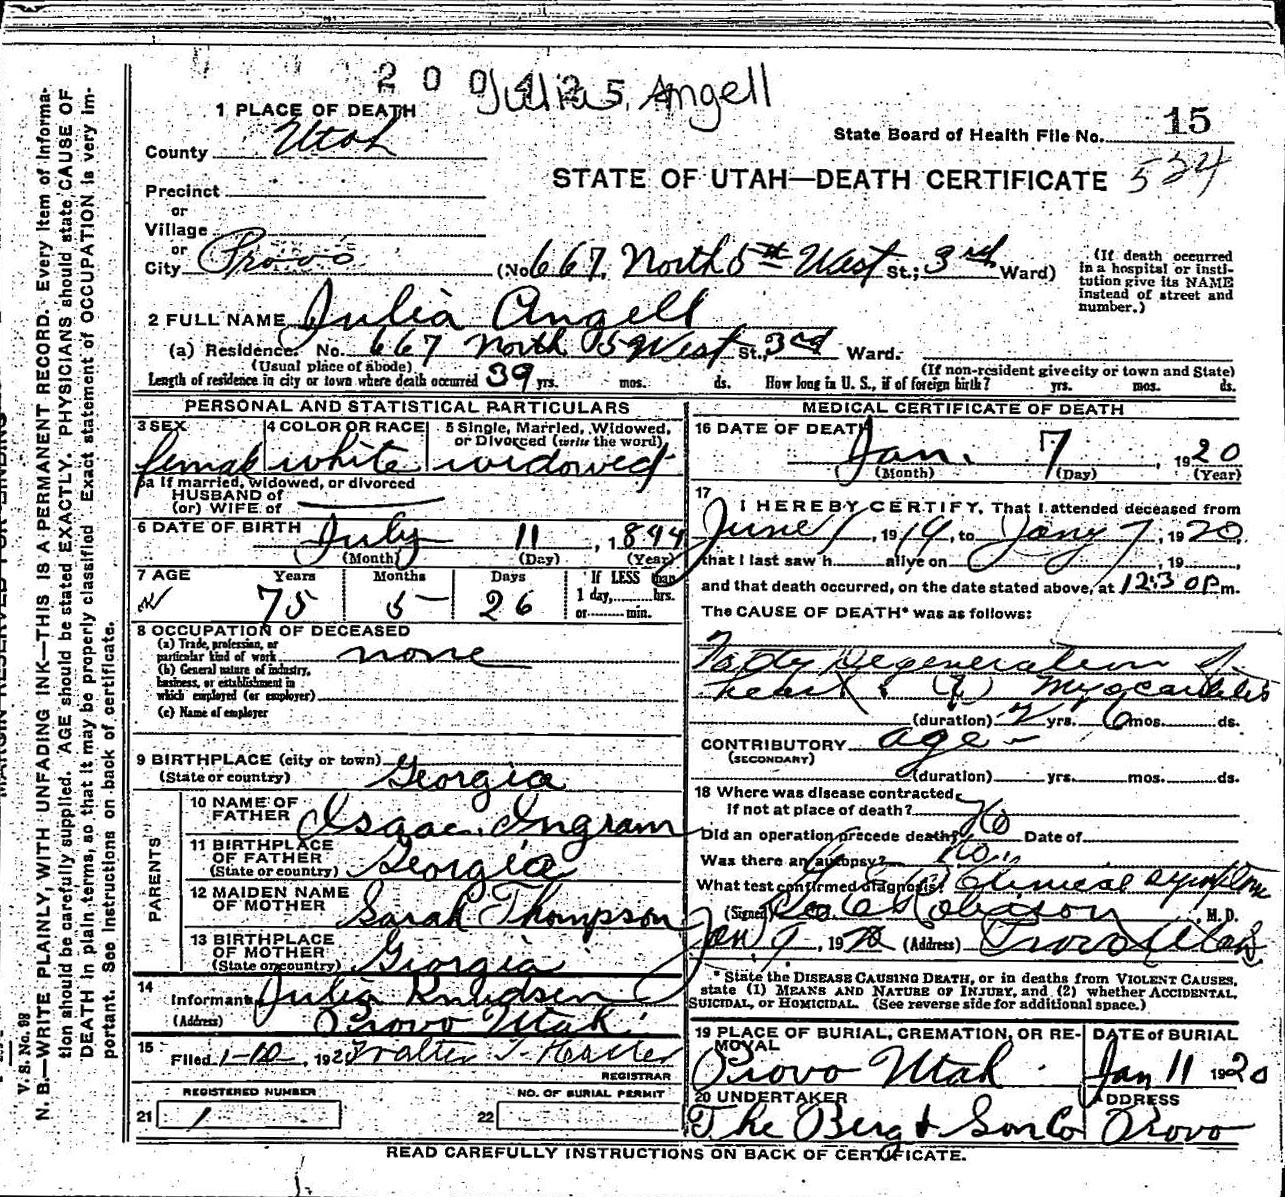 2 0 0 4 2 5
Julia S. Angell
1 PLACE OF DEATH
State Board of Health File No. 15
County Utah
STATE OF UTAH—DEATH CERTIFICATE 524
Precinct
or
Village
or
City Provo (No. 667 North 5th West St.; 3rd Ward)
(If death occurred in a hospital or institution give its NAME instead of street and number.)
2 FULL NAME Julia Angell
(a) Residence. No. 667 North 5 West St., 3rd Ward.
(Usual place of abode) (If non-resident give city or town and State)
Length of residence in city or town where death occurred 39 yrs. mos. ds. How long in U. S., if of foreign birth? yrs. mos. ds.
PERSONAL AND STATISTICAL PARTICULARS
3 SEX 4 COLOR OR RACE 5 Single, Married, Widowed, or Divorced (write the word)
female white widowed
5a If married, widowed, or divorced
HUSBAND of
(or) WIFE of
6 DATE OF BIRTH July 11, 1844
(Month) (Day) (Year)
7 AGE Years Months Days If LESS than
75 5 26 1 day, hrs.
or min.
8 OCCUPATION OF DECEASED
(a) Trade, profession, or
particular kind of work none
(b) General nature of industry,
business, or establishment in
which employed (or employer)
(c) Name of employer
9 BIRTHPLACE (city or town)
(State or country) Georgia
PARENTS
10 NAME OF
FATHER Isaac Ingram
11 BIRTHPLACE
OF FATHER
(State or country) Georgia
12 MAIDEN NAME
OF MOTHER Sarah Thompson
13 BIRTHPLACE
OF MOTHER
(State or country) Georgia
14
Informant Julia Knudsen
(Address) Provo Utah
15
Filed 1-10, 1920 Walter T. Hasler
REGISTRAR
REGISTERED NUMBER NO. OF BURIAL PERMIT
21 1 22
MEDICAL CERTIFICATE OF DEATH
16 DATE OF DEATH
Jan. 7, 1920
(Month) (Day) (Year)
17
I HEREBY CERTIFY, That I attended deceased from
June 1, 1919, to Jany 7, 1920,
that I last saw h alive on , 19 ,
and that death occurred, on the date stated above, at 12:30 p m.
The CAUSE OF DEATH* was as follows:
Fatty Degeneration of
heart. Myocarditis
(duration) 2 yrs. 6 mos. ds.
CONTRIBUTORY age
(SECONDARY)
(duration) yrs. mos. ds.
18 Where was disease contracted
if not at place of death?
Did an operation precede death? No Date of
Was there an autopsy? no
What test confirmed diagnosis? Clinical symptoms
(Signed) Geo E Robison, M. D.
Jan 9, 1920 (Address) Provo Utah
* State the DISEASE CAUSING DEATH, or in deaths from VIOLENT CAUSES,
state (1) MEANS AND NATURE OF INJURY, and (2) whether ACCIDENTAL,
SUICIDAL, or HOMICIDAL. (See reverse side for additional space.)
19 PLACE OF BURIAL, CREMATION, OR REMOVAL DATE of BURIAL
Provo Utah. Jan 11 1920
20 UNDERTAKER ADDRESS
The Berg & Son Co Provo
READ CAREFULLY INSTRUCTIONS ON BACK OF CERTIFICATE.
V. S. No. 98
N. B.—WRITE PLAINLY, WITH UNFADING INK—THIS IS A PERMANENT RECORD. Every item of informa-
tion should be carefully supplied. AGE should be stated EXACTLY. PHYSICIANS should state CAUSE OF
DEATH in plain terms, so that it may be properly classified. Exact statement of OCCUPATION is very im-
portant. See instructions on back of certificate.